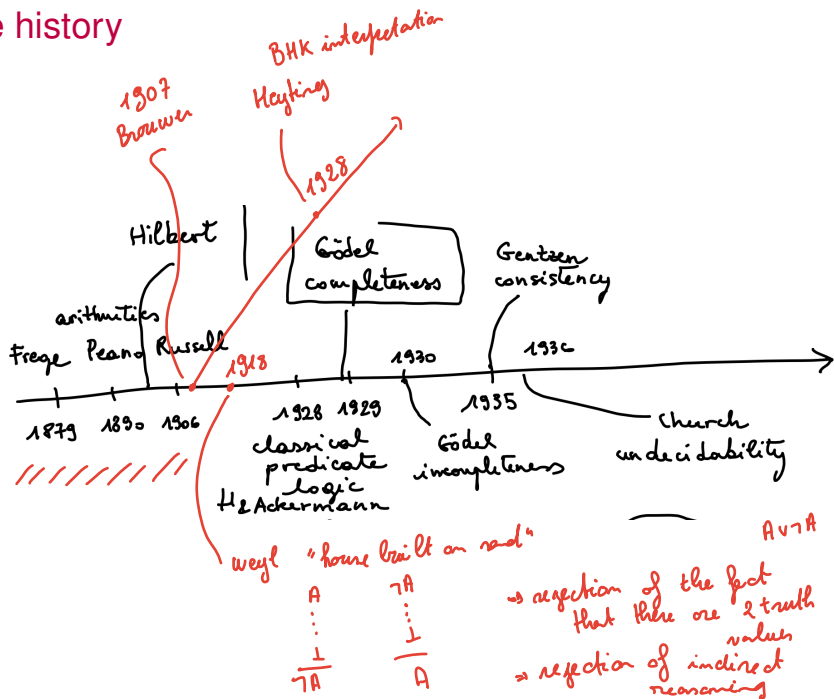 e history
BHK interpetation
Heyting
1907
Brouwer
1928
Hilbert
Gödel
completeness
Gentzen
consistency
arithmetics
Frege Peano Russell
1918
1930
1936
1879
1890
1906
1928
1929
1935
classical
predicate
logic
H&Ackermann
Gödel
incompleteness
Church
undecidability
weyl "house built on sand"
A∨¬A
A
⋮
⊥
¬A
¬A
⋮
⊥
A
→ rejection of the fact
that there are 2 truth
values
→ rejection of indirect
reasoning